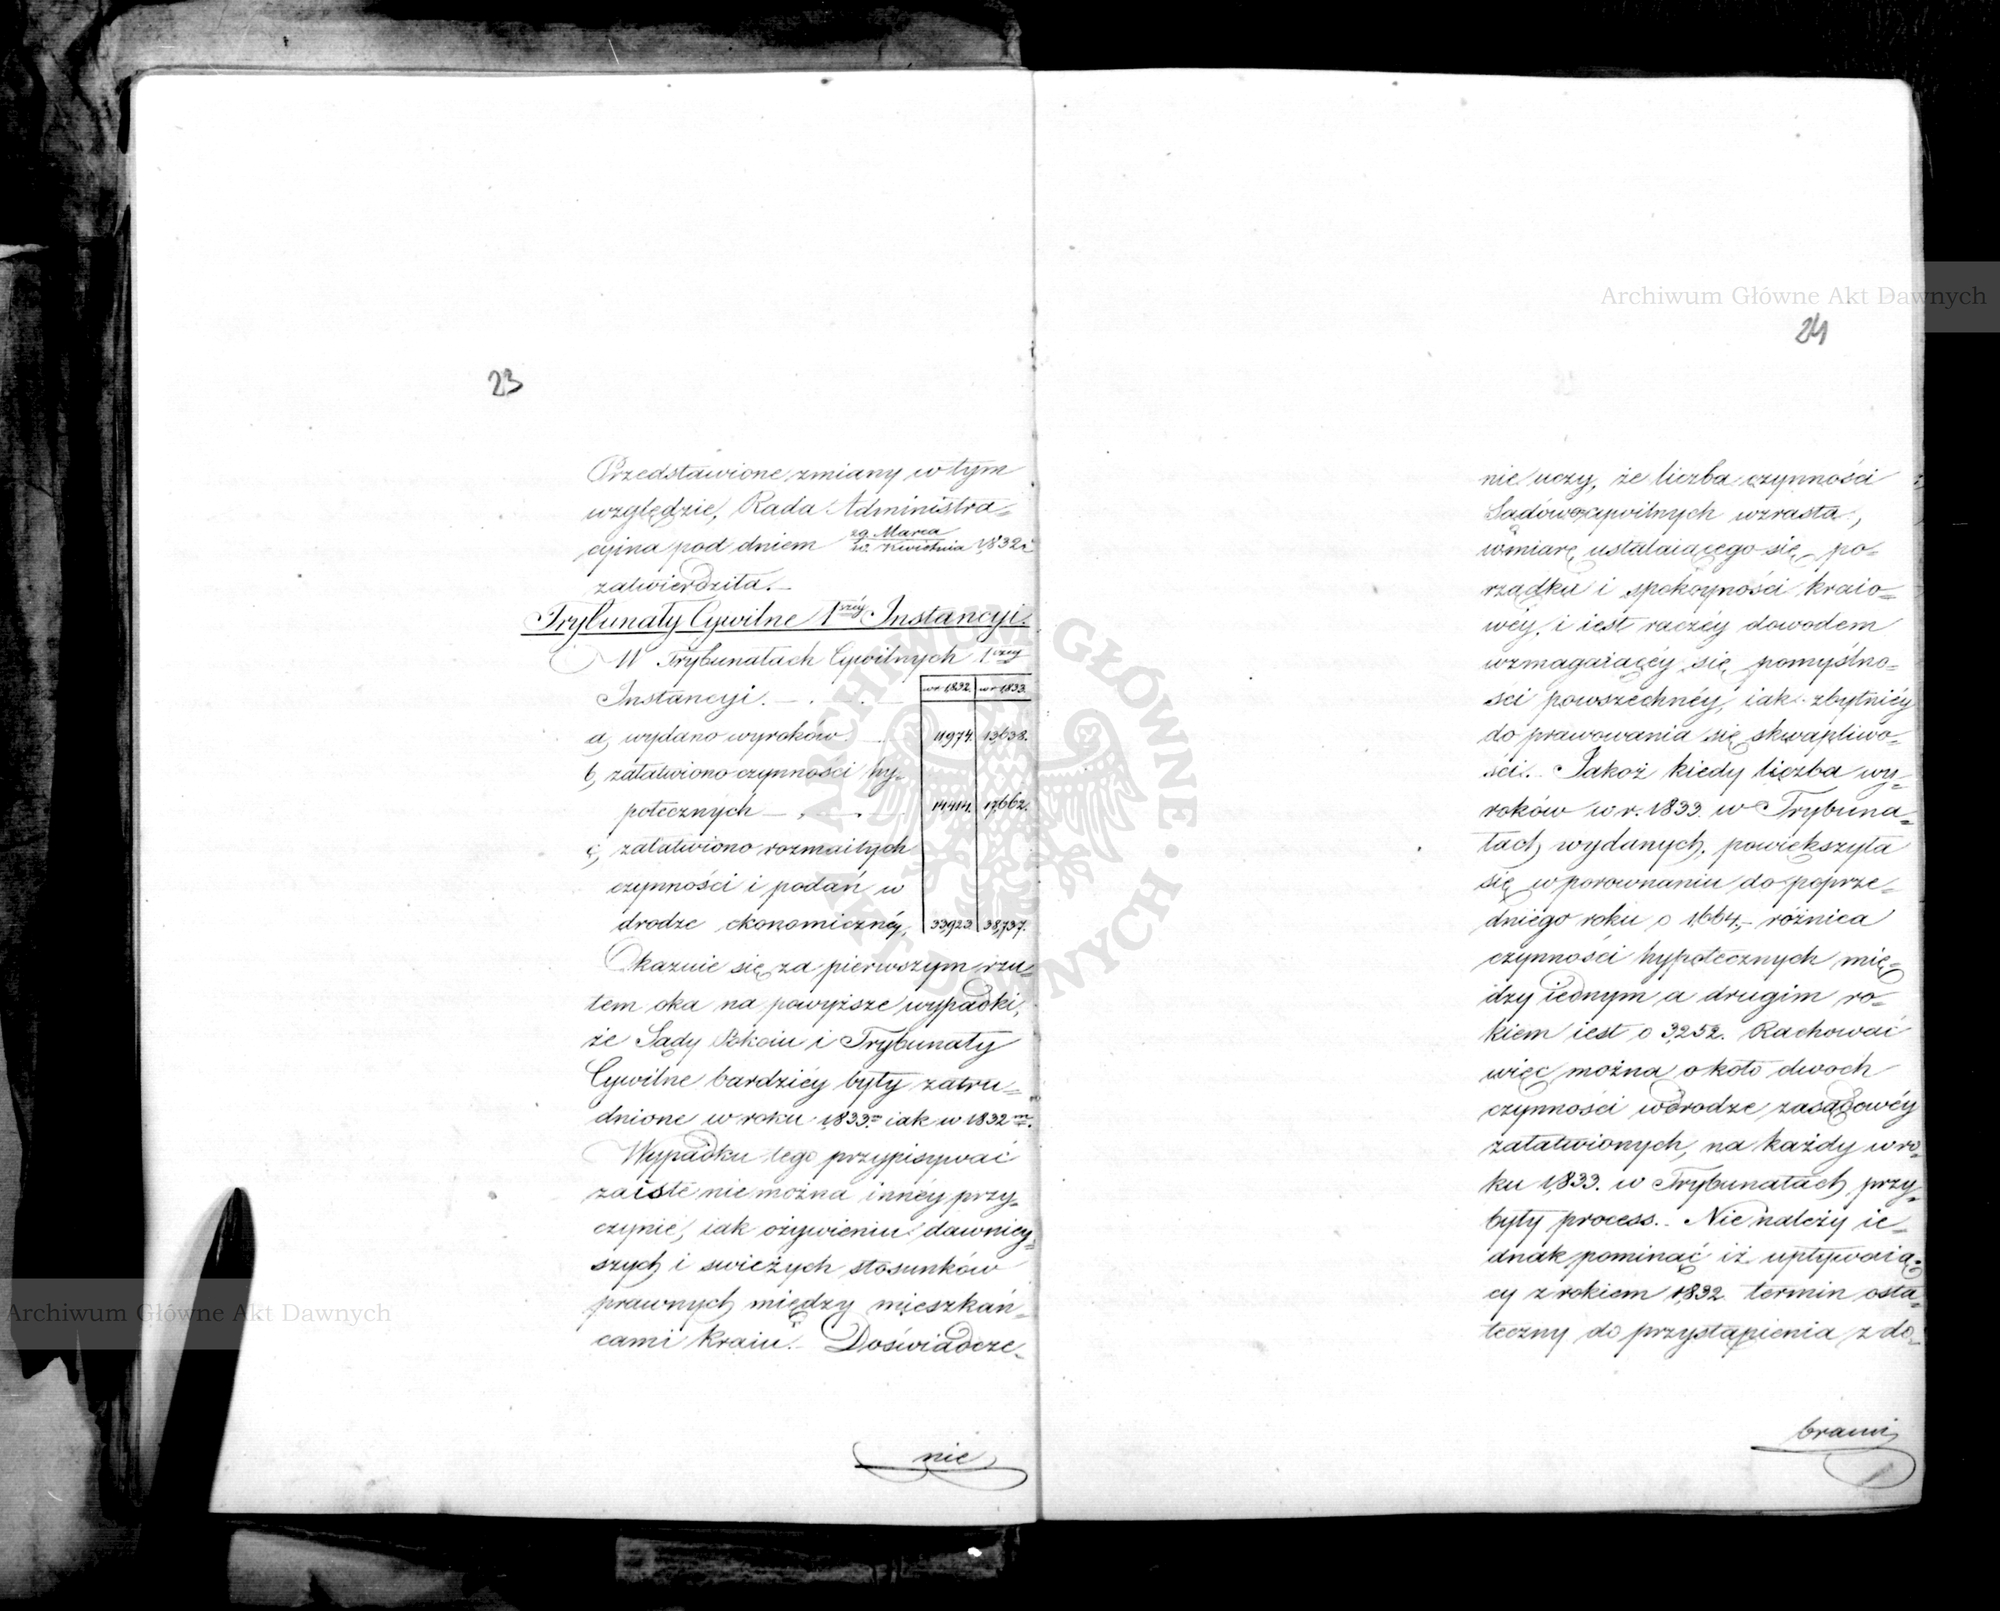 23
Przedstawione zmiany w tym
względzie, Rada Administra=
cyina pod dniem 29 Marca 1832 r
Kwietnia
zatwierdziła.—
Trybunały Cywilne 1széy Instancyi.
W Trybunałach Cywilnych 1széy
Instancyi. — . — . — w r. 1832. w r. 1833.
a, wydano wyroków. — 11974. 13,638.
b, załatwiono czynności hy=
potecznych — . — . — 14414. 17,662.
c, załatwiono rozmaitych
czynności i podań w
drodze ekonomicznéy, 33,923. 38,737.
Okazuie się za pierwszym rzu=
tem oka na powyższe wypadki,
że Sądy Pokoiu i Trybunały
Cywilne bardziéy były zatru=
dnione w roku 1,833.m iak w 1832m.
Wypadku tego przypisywać
zaiste nie można innéy przy=
czynie, iak ożywieniu dawniey=
szych i swieżych stosunków
prawnych między mieszkań=
cami kraiu.— Doświadcze=
nie
24
nie uczy, że liczba czynności
Sądowo cywilnych wzrasta,
w miarę ustalaiącego się po=
rządku i spokoyności kraio=
wéy, i iest raczéy dowodem
wzmagaiącéy się pomyślno=
ści powszechnéy, iak zbytniéy
do prawowania się skwapliwo=
ści.— Jakoż kiedy liczba wy=
roków w r. 1833. w Trybuna=
łach wydanych, powiększyła
się w porownaniu do poprze=
dniego roku o 1,664,— różnica
czynności hypotecznych mię=
dzy iednym a drugim ro=
kiem iest o 3,252. Rachować
więc można około dwoch
czynności w drodze zasadowéy
załatwionych, na każdy w ro=
ku 1,833. w Trybunałach przy=
były process.— Nie należy ie=
dnak pominąć iż upływaią=
cy z rokiem 1,832. termin osta=
teczny do przystąpienia z do=
brami
Archiwum Główne Akt Dawnych
Archiwum Główne Akt Dawnych
ARCHIWUM GŁÓWNE AKT DAWNYCH